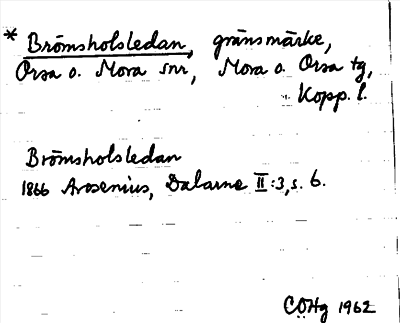 * Brömsholsledan, gränsmärke,
Orsa o. Mora snr, Mora o. Orsa tg,
Kopp. l.
Brömsholsledan
1866 Arosenius, Dalarne II:3, s. 6.
COHg 1962